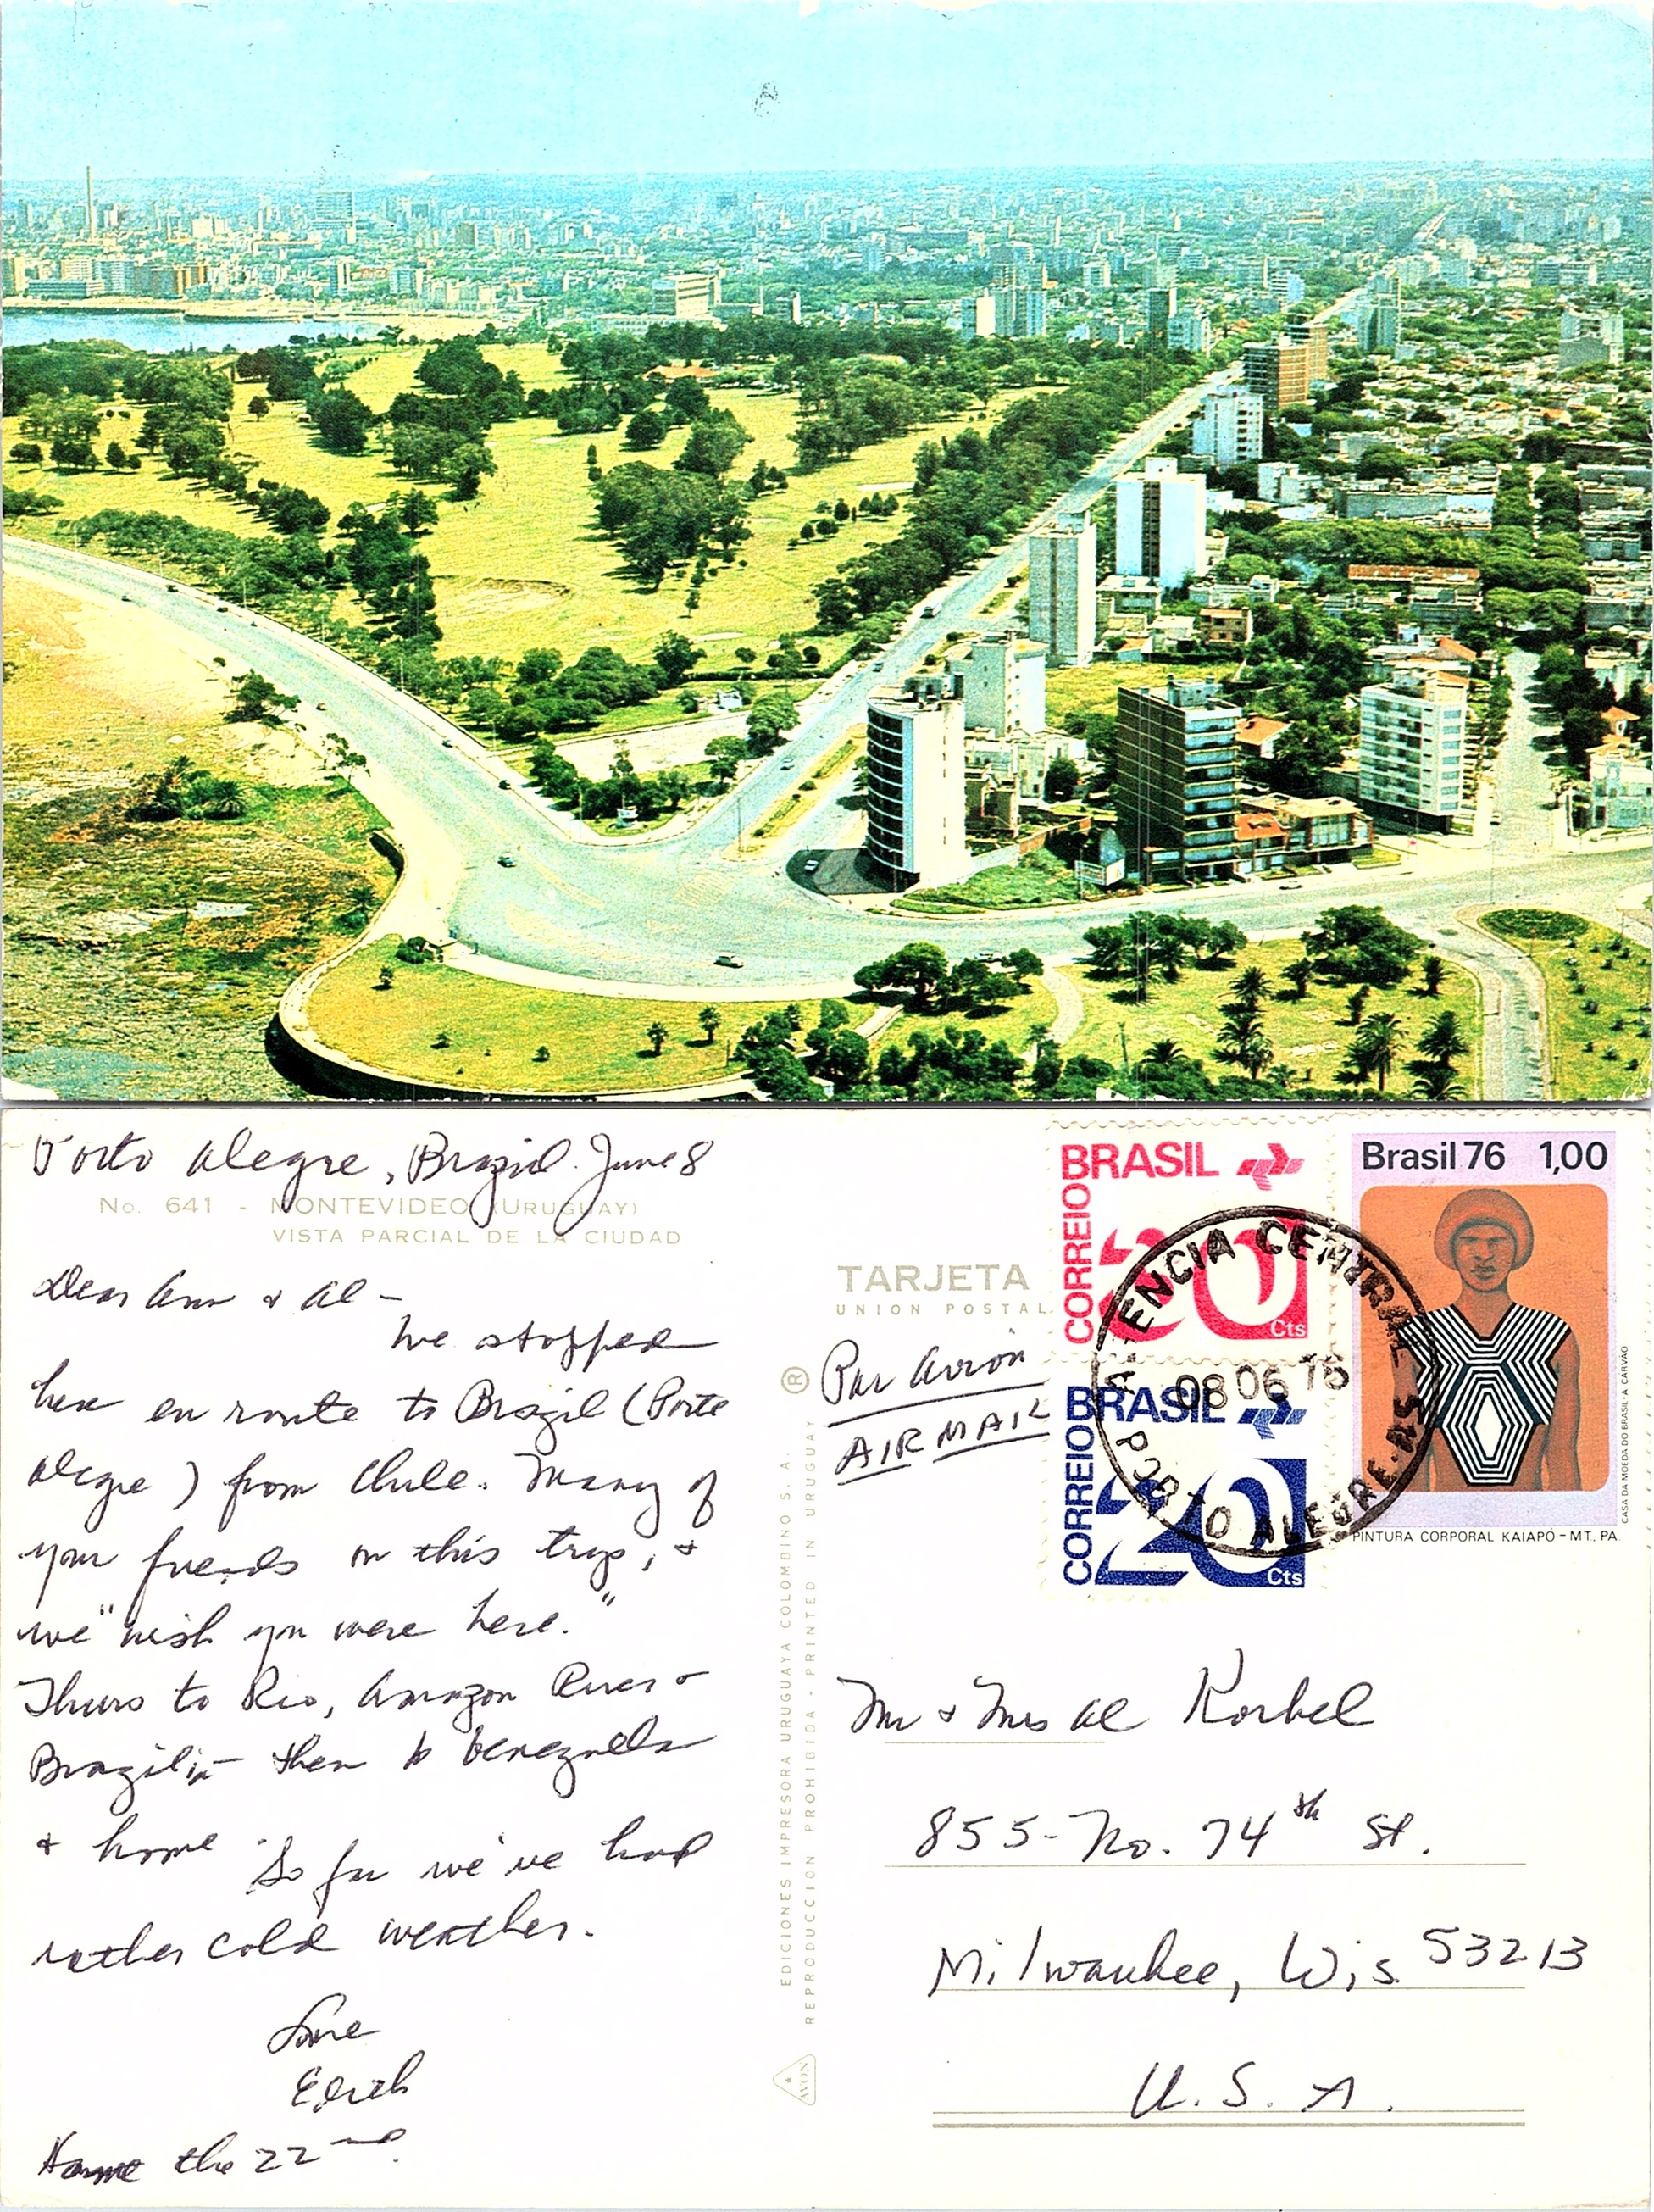 Porto Alegre, Brazil. June 8
No. 641 - MONTEVIDEO (URUGUAY)
VISTA PARCIAL DE LA CIUDAD
Dear Ann & Al -
We stopped
here en route to Brazil (Porte
Alegre) from Chile. Many of
your friends on this trip, &
we "wish you were here."
Thurs to Rio, Amazon River &
Brazilia - then to Venezuela
& home. So far we've had
rather cold weather.
Love
Edith
Home the 22nd.
EDICIONES IMPRESORA URUGUAYA COLOMBINO S. A.
REPRODUCCION PROHIBIDA - PRINTED IN URUGUAY
®
AVON
TARJETA
UNION POSTAL
Par Avion
AIR MAIL
BRASIL
CORREIO
20
Cts
BRASIL
CORREIO
20
Cts
Brasil 76 1,00
CASA DA MOEDA DO BRASIL-A. CARVÃO
PINTURA CORPORAL KAIAPÓ - MT. PA.
AGENCIA CENTRAL
08 06 76
PORTO ALEGRE-RS
Mr & Mrs Al Korbel
855 - No. 74th St.
Milwaukee, Wis 53213
U.S.A.